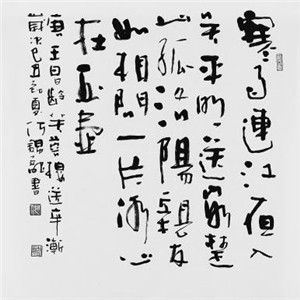 寒雨連江夜入
吳平明送客楚
山孤洛陽親友
如相問一片冰心
在玉壺
王昌齡芙蓉樓送辛漸
歲次己丑初夏書